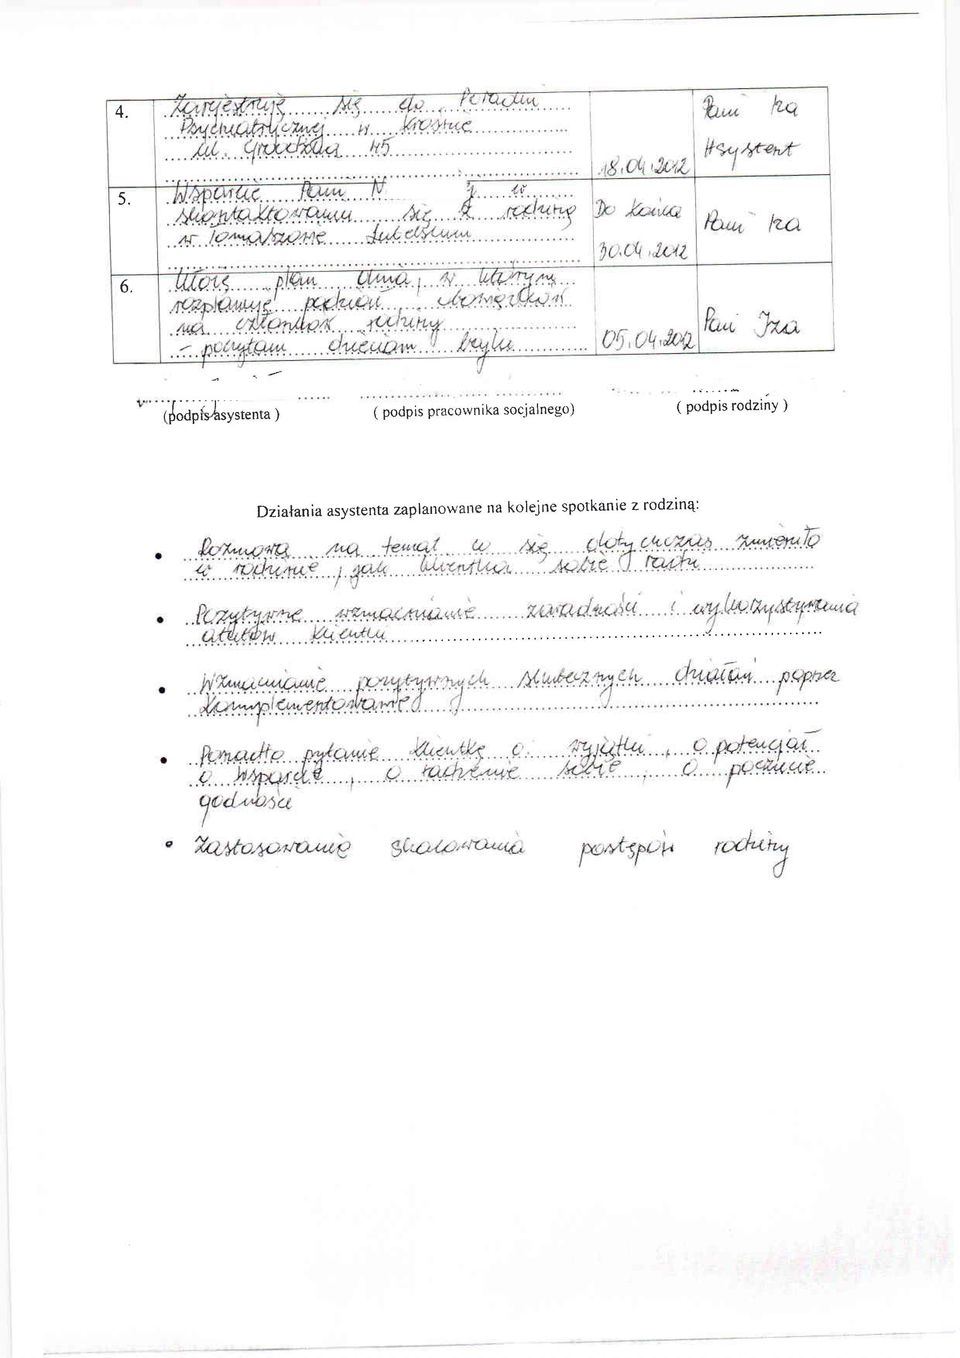 4. Zarejestruję się do Poradni Pani Iza
Psychiatrycznej w Krośnie Asystent
ul. Grodzka 45
18.04.2012
5. Wsparcie Pani N. J. w
skontaktowaniu się z rodziną Do końca Pani Iza
w Tomaszowie Lubelskim
30.04.2012
6. Ułożę plan dnia, w którym
rozplanuję podział obowiązków
na członków rodziny Pani Iza
- poczytam dzieciom bajki 05.04.2012
(podpis asystenta) ( podpis pracownika socjalnego) ( podpis rodziny )
Działania asystenta zaplanowane na kolejne spotkanie z rodziną:
• Rozmowa na temat co się dotychczas zmieniło
w rodzinie, jak klientka sobie radzi
• Pozytywne wzmacnianie zaradności i wykorzystywania
atutów klientki
• Wzmacnianie pozytywnych skutecznych działań poprzez
komplementowanie
• Ponadto pytanie klientkę o wyjątki, o potencjał
o wsparcie, o radzenie sobie, o poczucie
godności
• Zastosowanie skalowania postępów rodziny